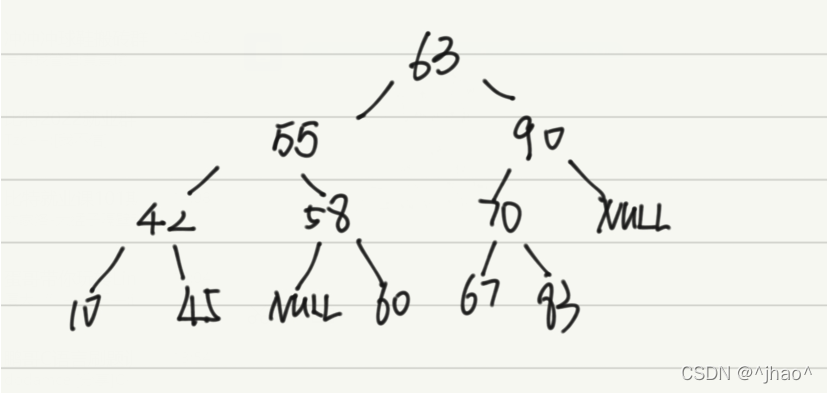 63
55 90
42 58 70 NULL
10 45 NULL 60 67 83
CSDN @^jhao^